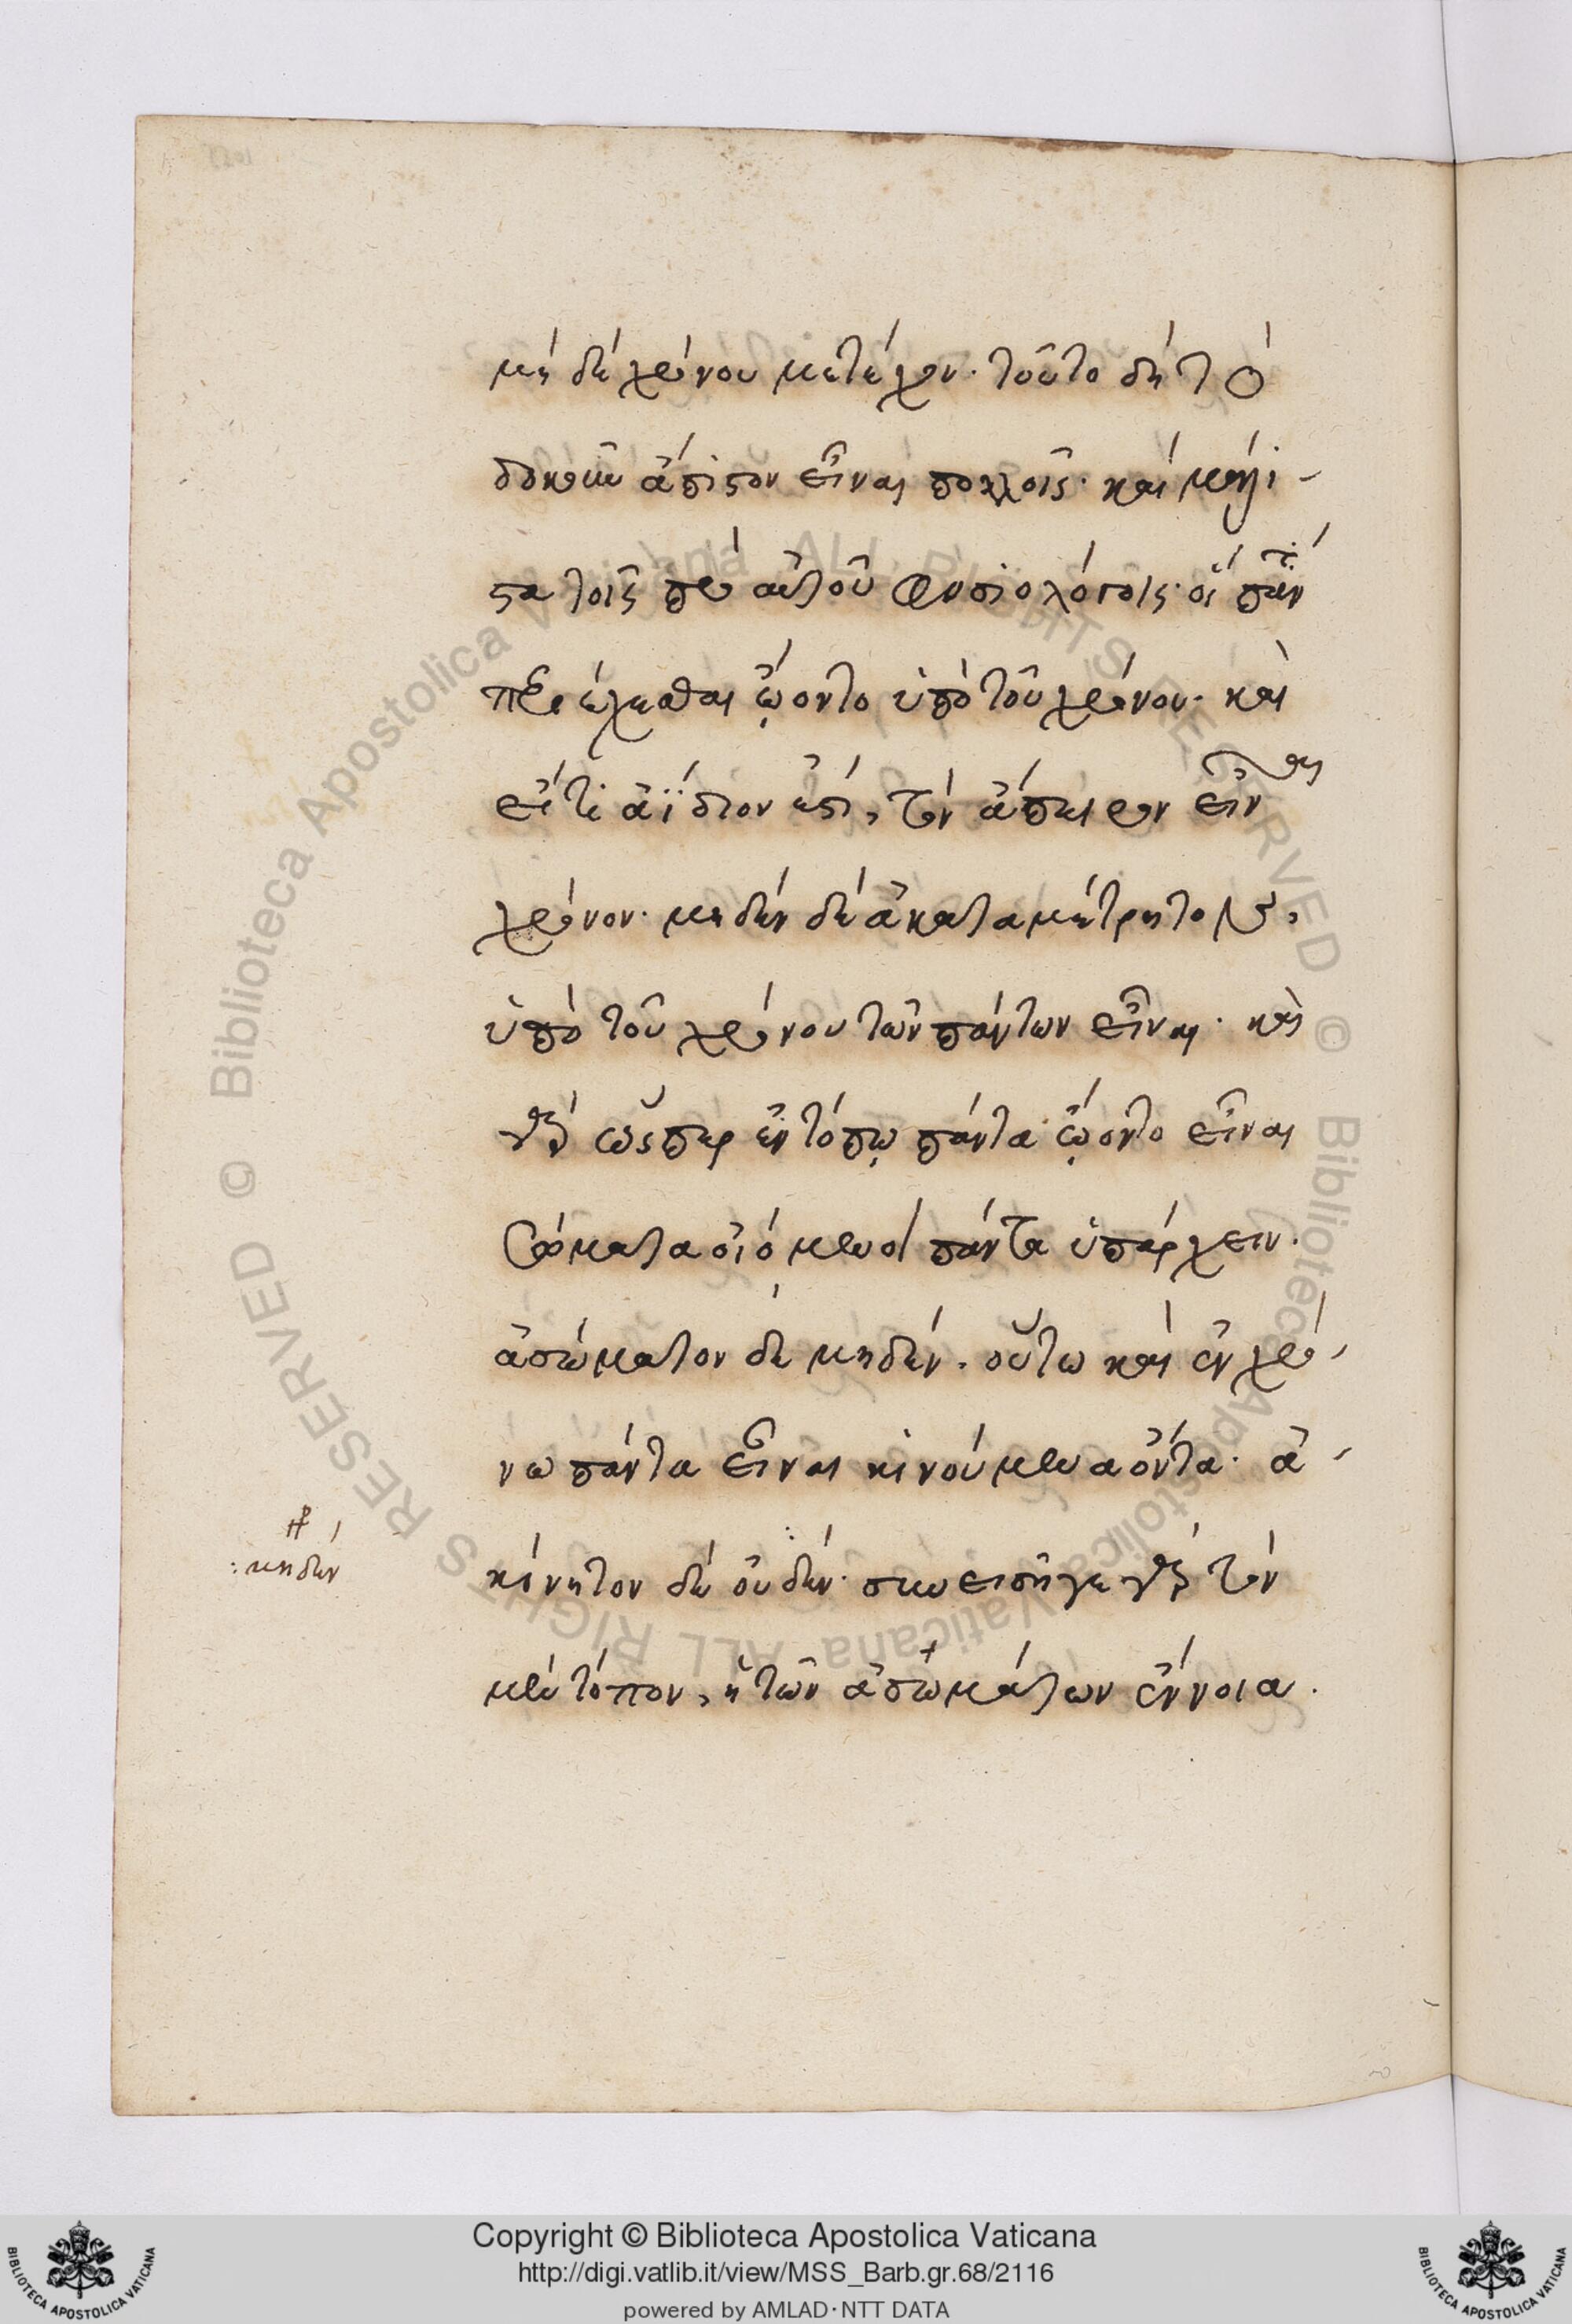 μὴ δὲ χρόνου μετέχον· τοῦτο δὴ τὸ
δοκοῦν ἄπιστον εἶναι πολλοῖς· καὶ μάλι-
στα τοῖς πρὸ αὐτοῦ φυσιολόγοις· οἳ πάντα
περιέχεσθαι ᾤοντο ὑπὸ τοῦ χρόνου· καὶ
εἴ τι ἀΐδιόν ἐστι, τὸν ἄπειρον εἶναι
χρόνον· μηδὲν δὲ ἀκαταμέτρητον,
ὑπὸ τοῦ χρόνου τῶν πάντων εἶναι· καὶ
γὰρ ὥσπερ ἐν τόπῳ πάντα ᾤοντο εἶναι
σώματα οἰόμενοι πάντα ὑπάρχειν·
ἀσώματον δὲ μηδέν· οὕτω καὶ ἐν χρό-
νω πάντα εἶναι κινούμενα ὄντα· ἀ-
κίνητον δὲ οὐδέν· συνεισῆγε γὰρ τὸν
μὲν τόπον, ἡ τῶν ἀσωμάτων ἔννοια.
: μηδέν
Copyright © Biblioteca Apostolica Vaticana
http://digi.vatlib.it/view/MSS_Barb.gr.68/2116
powered by AMLAD·NTT DATA
BIBLIOTECA APOSTOLICA VATICANA
BIBLIOTECA APOSTOLICA VATICANA
© Biblioteca Apostolica Vaticana ALL RIGHTS RESERVED © Biblioteca Apostolica Vaticana ALL RIGHTS RESERVED